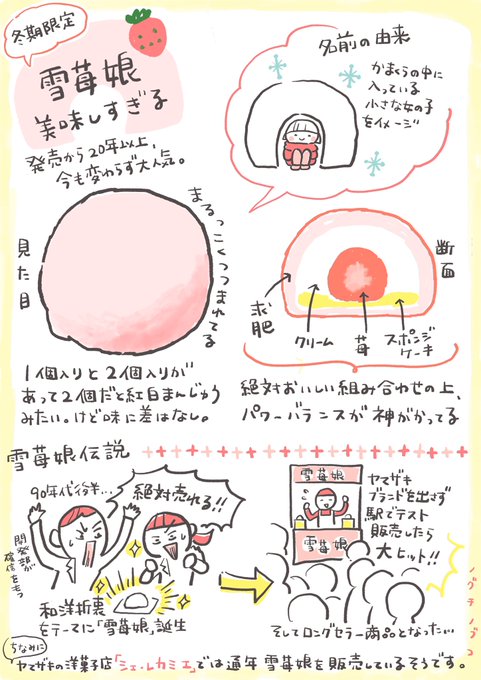 冬期限定
雪苺娘
美味しすぎる
発売から20年以上、
今も変わらず大人気。
名前の由来
かまくらの中に
入っている
小さな女の子
をイメージ
見た目
まるっこくつつまれてる
1個入りと2個入りが
あって2個だと紅白まんじゅう
みたい。けど味に差はなし。
断面
求肥
クリーム
苺
スポンジ
ケーキ
絶対おいしい組み合わせの上、
パワーバランスが神がかってる
雪苺娘伝説
90年代後半…
絶対売れる!!
開発部が
確信をもつ
和洋折衷
をテーマに「雪苺娘」誕生
雪苺娘
雪苺娘
ヤマザキ
ブランドを出さず
駅でテスト
販売したら
大ヒット!!
そしてロングセラー商品となった…
ちなみに
ヤマザキの洋菓子店「シェ・レカミエ」では通年雪苺娘を販売しているそうです。